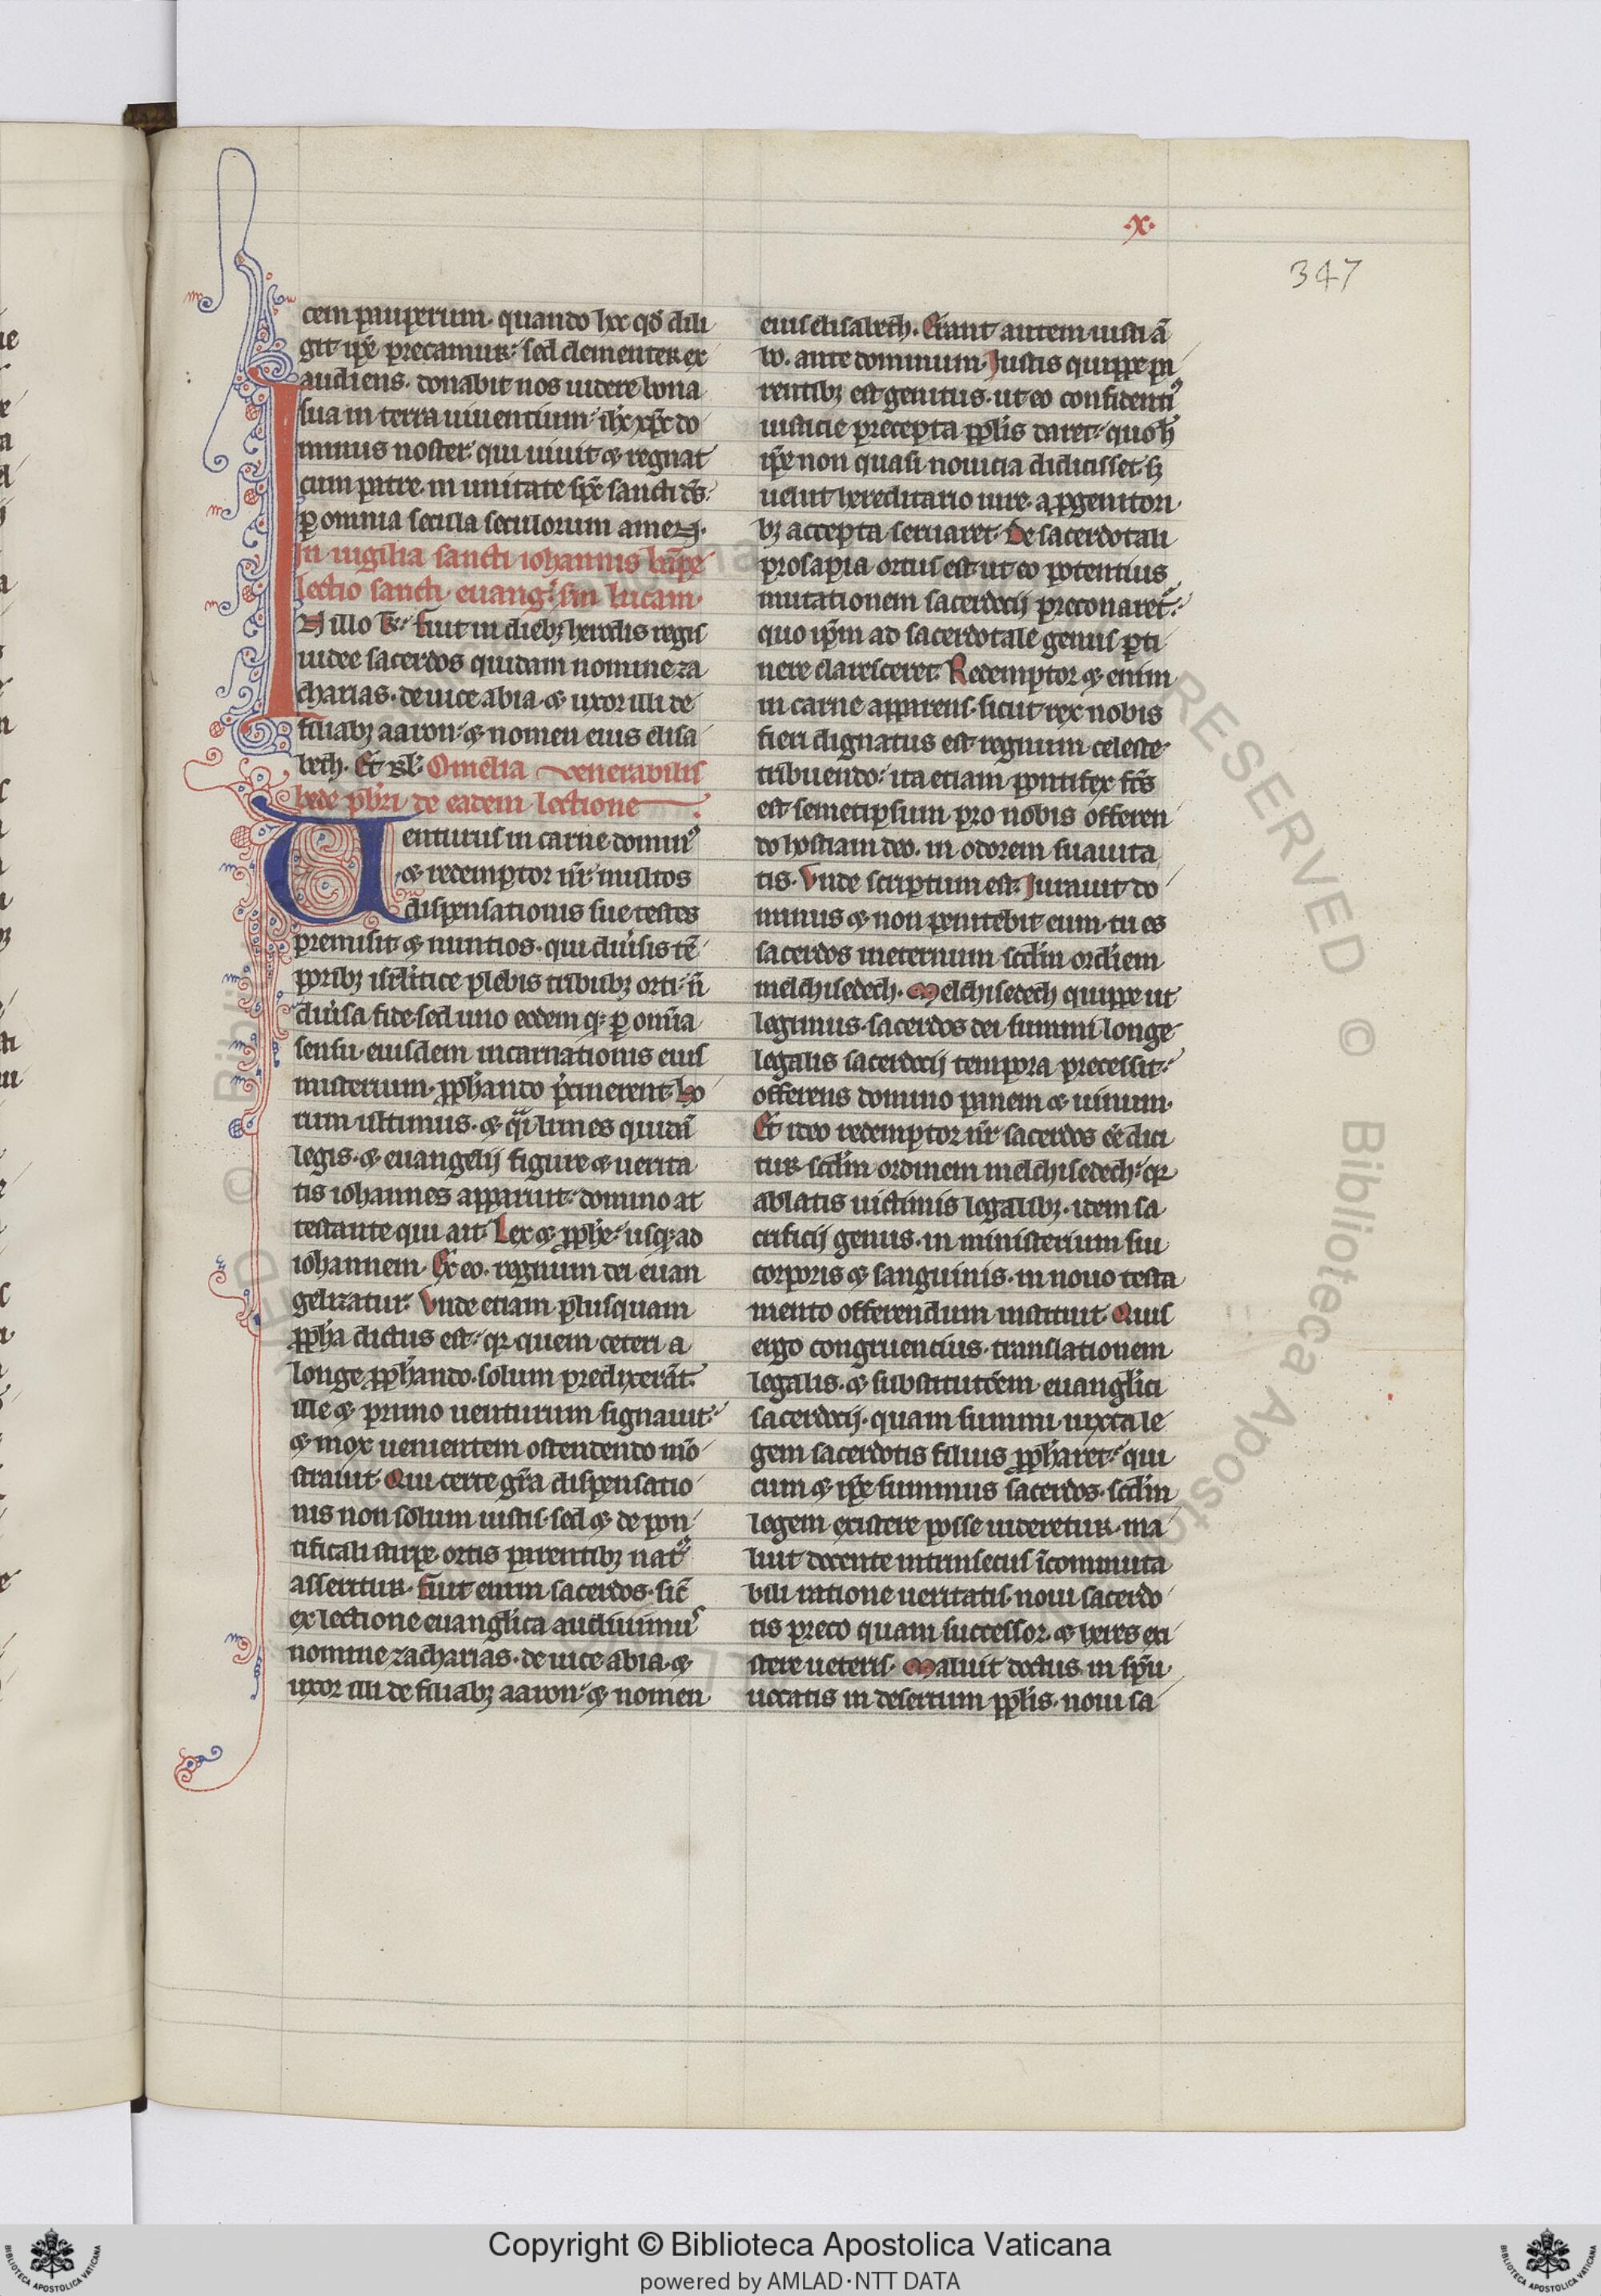 ·x·
347
cem pauperum· quando hec qđ dili
git ip̄e precamur: sed clementer ex
audiens· donabit nos uidere bona
sua in terra uiuentium· ih̄c xp̄c do
minus noster· qui uiuit ⁊ regnat
cum patre· in unitate sp̄c sancti d̄s·
ꝑ omnia secula seculorum amen·
In uigilia sancti iohannis bap̄te
lectio sancti· euanḡ· scd̄m lucam·
IN illo t̄· fuit in diebꝫ herodis regis
iudee sacerdos quidam nomine za
charias· de uice abia· ⁊ uxor illi de
filiabꝫ aaron· ⁊ nomen eius elisa
beth· Et rl̄· Omelia uenerabilis
bede pb̄ri de eadem lectione
Uenturus in carne dominꝰ
⁊ redemptor nr̄· multos
dispensationis sue testes
premisit ⁊ nuntios· qui diu̾sis tē
poribꝫ isrl̄itice plebis tribubꝫ orti· n̄
diu̾sa fide· sed uno eodemqꝫ ꝑ om̄ia
sensu· eiusdem incarnationis eius
misterium· ꝓph̄ando p̾cinerent· Ho
rum ultimus· ⁊ qͣi limes quidā
legis· ⁊ euangelij figure ⁊ uerita
tis iohannes apparuit· domino at
testante qui ait· Lex ⁊ ꝓph̄e· usqꝫ ad
iohannem· Ex eo· regnum dei euan
gelizatur· Vnde etiam plusquam
ꝓph̄a dictus est· qꝛ quem ceteri a
longe ꝓph̄ando· solum predixerāt·
ille ⁊ primo uenturum signauit·
⁊ mox uenientem ostendendo mō
strauit· Qui certe gr̄a dispensatio
nis non solum iustis· sed ⁊ de pon
tificali stirpe ortis parentibꝫ natꝰ
asseritur· Fuit enim sacerdos· sic̄
ex lectione euangl̄ica audiuimus
nomine zacharias· de uice abia· ⁊
uxor illi de filiabꝫ aaron· ⁊ nomen
eius elisabeth· Erant autem iusti ā
bo· ante dominum· Iustis quippe pa
rentibꝫ est genitus· ut eo confidentiꝰ
iusticie precepta ꝓpl̄is daret· quo h̾
ip̄e non quasi nouicia didicisset· sꝫ
uelut hereditario iure· a ꝓgenitori
bꝫ accepta seruaret· De sacerdotali
prosapia ortus est· ut eo potentius
mutationem sacerdocij preconaret·
quo ip̄m ad sacerdotale genus ꝑti
nere claresceret· Redemptor ⁊ enim
in carne apparens· sicut rex nobis
fieri dignatus est· regnum celeste
tribuendo· ita etiam pontifex fc̄s
est semetipsum· pro nobis offeren
do hostiam deo· in odorem suauita
tis· Vnde scriptum est· Iurauit do
minus ⁊ non penitebit eum· tu es
sacerdos ineternum scd̄m ordiem
melchisedech· Melchisedech quippe ut
legimus· sacerdos dei summi longe
legalis sacerdocij tempora precessit·
offerens domino panem ⁊ uinum·
Et ideo redemptor nr̄ sacerdos ēē dici
tur· scd̄m ordinem melchisedech· qꝛ
ablatis uictimis legalibꝫ· idem sa
crificij genus· in ministerium sui
corporis ⁊ sanguinis· in nouo testa
mento offerendum instituit· Quis
ergo congruencius· translationem
legalis· ⁊ substitutōem euangl̄ici
sacerdocij· quam summi iuxta le
gem sacerdotis filius ꝓph̄aret· qui
cum ⁊ ip̄e summus sacerdos· scd̄m
legem existere posse uideretur· ma
luit docente intrinsecus īcommuta
bili ratione ueritatis· noui sacerdo
tis preco quam successor· ⁊ heres exi
stere ueteris· Maluit doctus in sp̄u·
uocatis in desertum ꝓpl̄is· noui sa
Copyright © Biblioteca Apostolica Vaticana
powered by AMLAD·NTT DATA